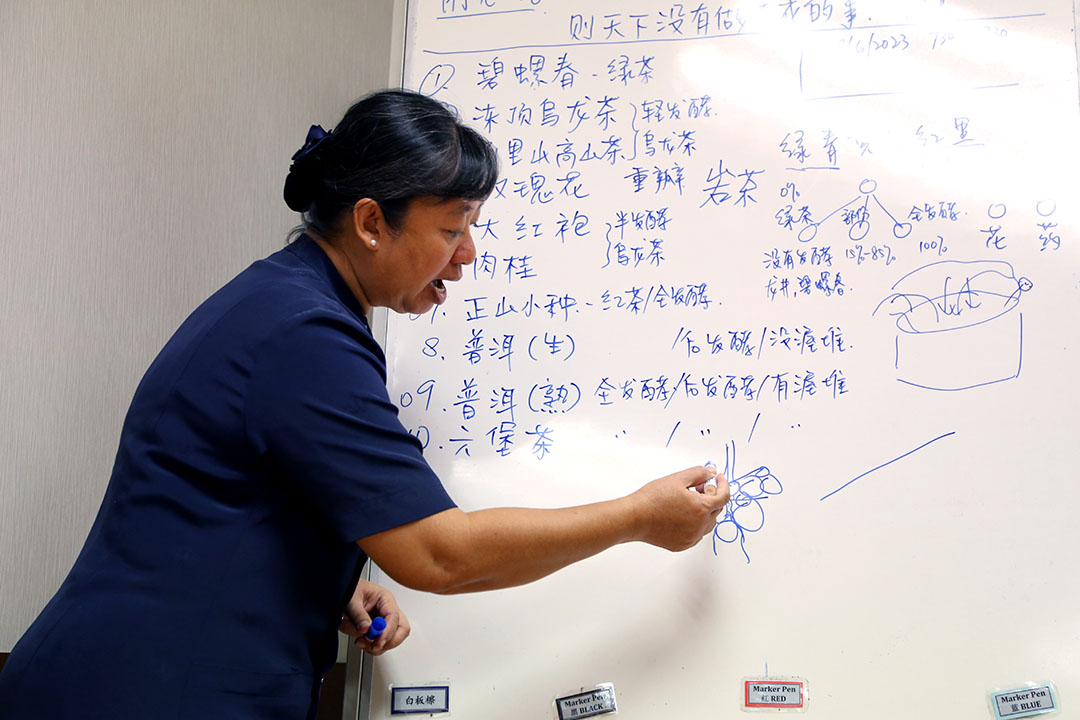 则天下没有做 的事.
/6/2023 730
① 碧螺春 - 绿茶
冻顶乌龙茶 } 轻发酵.
里山高山茶. } 乌龙茶
玫瑰花 重瓣 岩茶
大红袍 } 半发酵
肉桂 } 乌龙茶
正山小种. - 红茶/全发酵.
8. 普洱(生) /后发酵/没渥堆.
09. 普洱(熟) 全发酵/后发酵/有渥堆
10. 六堡茶 〃 / 〃 / 〃
绿 青 红 黑
0%
绿茶 全发酵.
没有发酵 15%-85% 100%
龙井, 碧螺春.
花 药
白板擦
Marker Pen
黑 BLACK
Marker Pen
红 RED
Marker Pen
蓝 BLUE